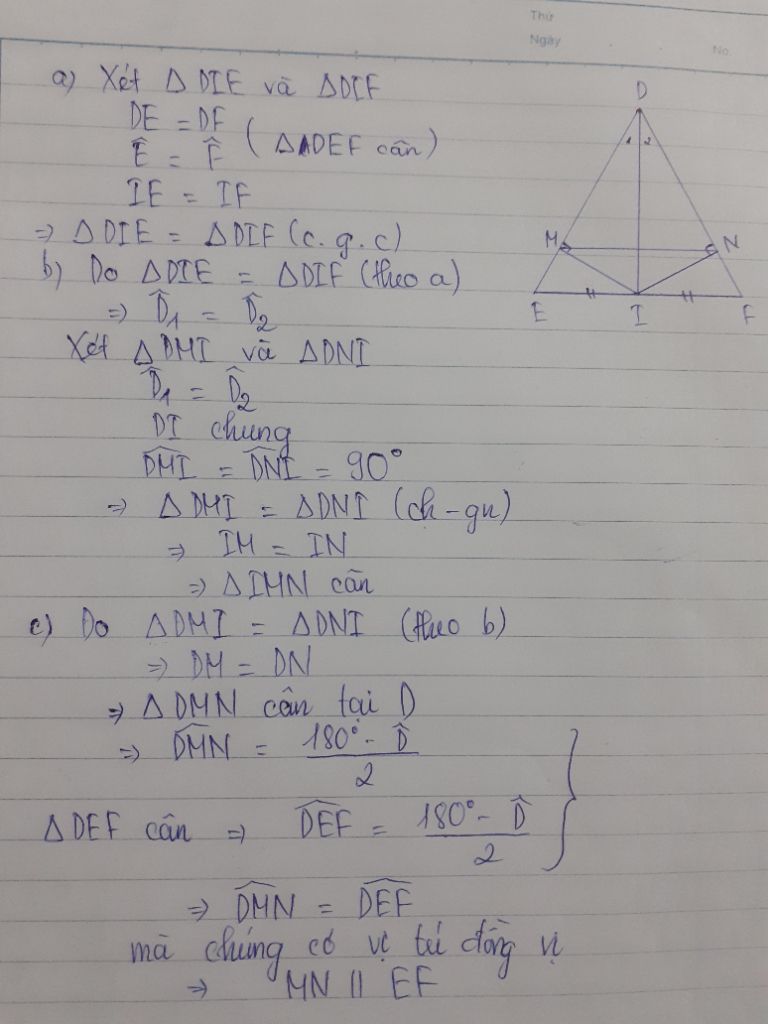 Thứ
Ngày
No.
a) Xét Δ DIE và ΔDIF
DE = DF
Ê = F̂ ( ΔDEF cân)
IE = IF
⇒ ΔDIE = ΔDIF (c.g.c)
b) Do ΔDIE = ΔDIF (theo a)
⇒ D̂₁ = D̂₂
Xét ΔDMI và ΔDNI
D̂₁ = D̂₂
DI chung
DMI = DNI = 90°
⇒ ΔDMI = ΔDNI (ch-gn)
⇒ IM = IN
⇒ ΔIMN cân
c) Do ΔDMI = ΔDNI (theo b)
⇒ DM = DN
⇒ ΔDMN cân tại D
⇒ DMN = 180° - D̂
2
ΔDEF cân ⇒ DEF = 180° - D̂
2
⇒ DMN = DEF
mà chúng có vị trí đồng vị
⇒ MN || EF
D
1 2
M N
E I F